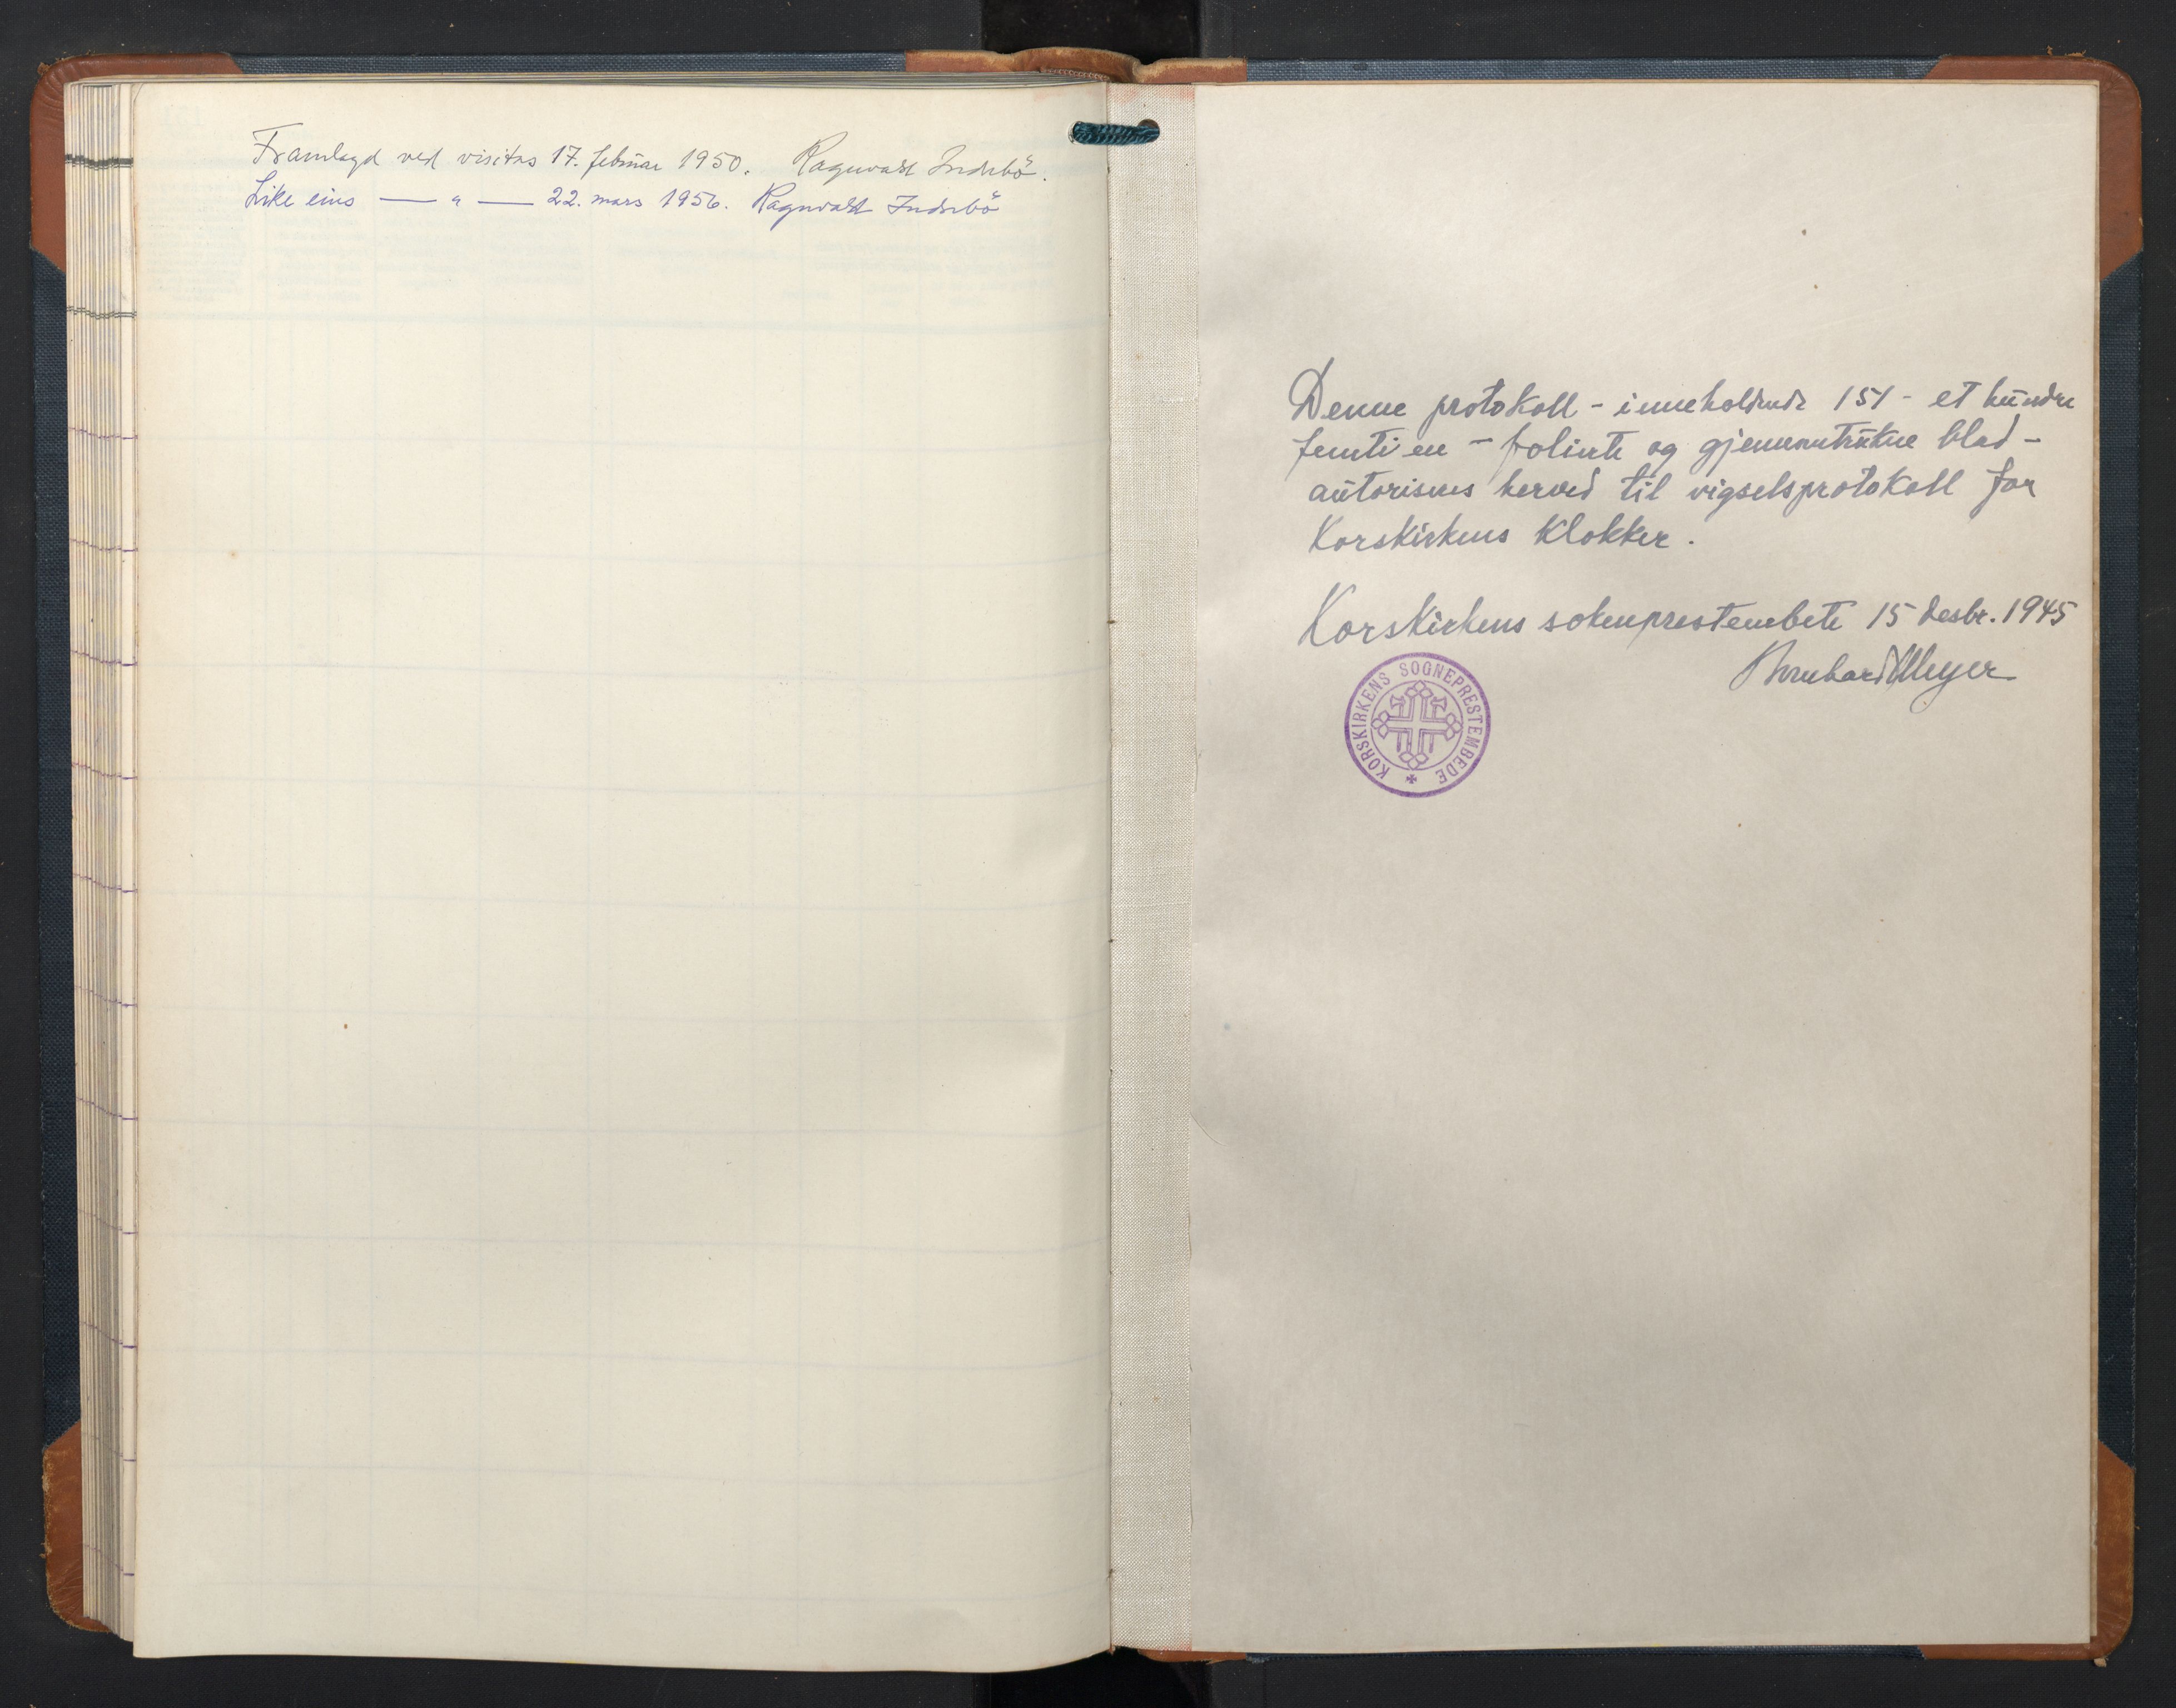 Framlagd ved visitas 17. februar 1950. Ragnvald Indrebö.
Like eins — " — 22. mars 1956. Ragnvald Indrebö
Denne protokoll - inneholdende 151 - et hundre
femti en - folierte og gjennomtrukne blad -
autoriseres herved til vigselsprotokoll for
Korskirkens klokker.
Korskirkens sokneprestembete 15 desbr. 1945
Bernhard Meyer
KORSKIRKENS SOGNEPRESTEMBEDE